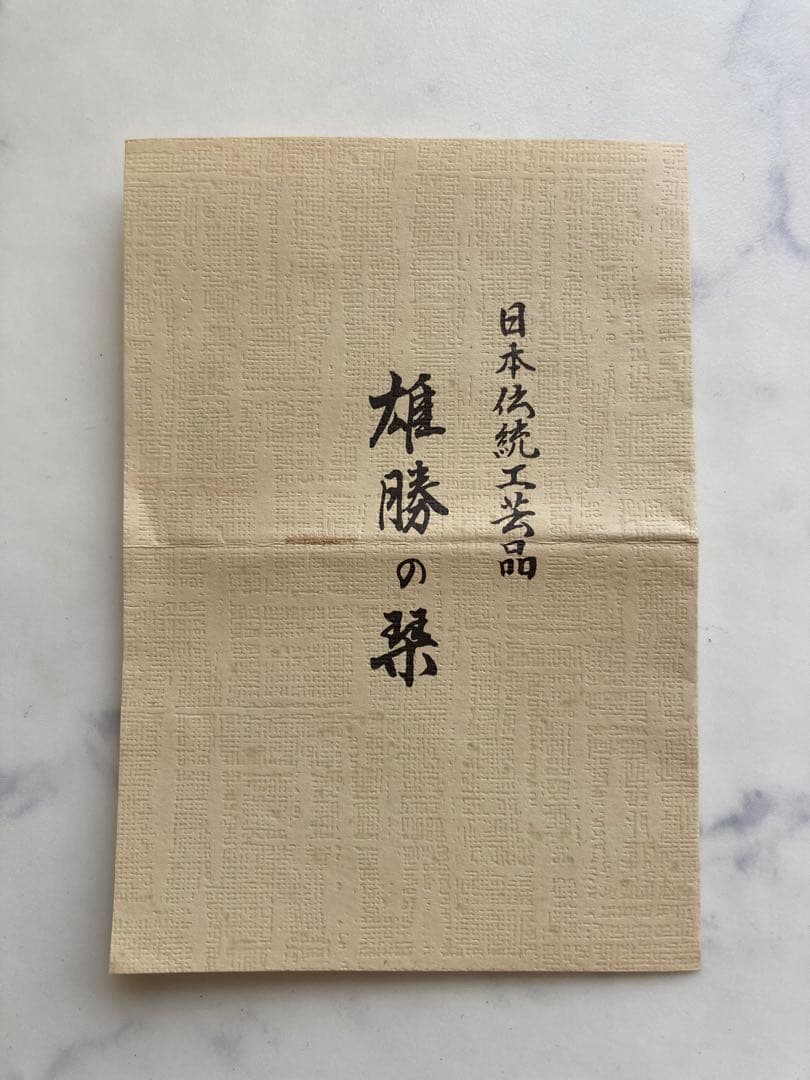 日本伝統工芸品
雄勝の栞